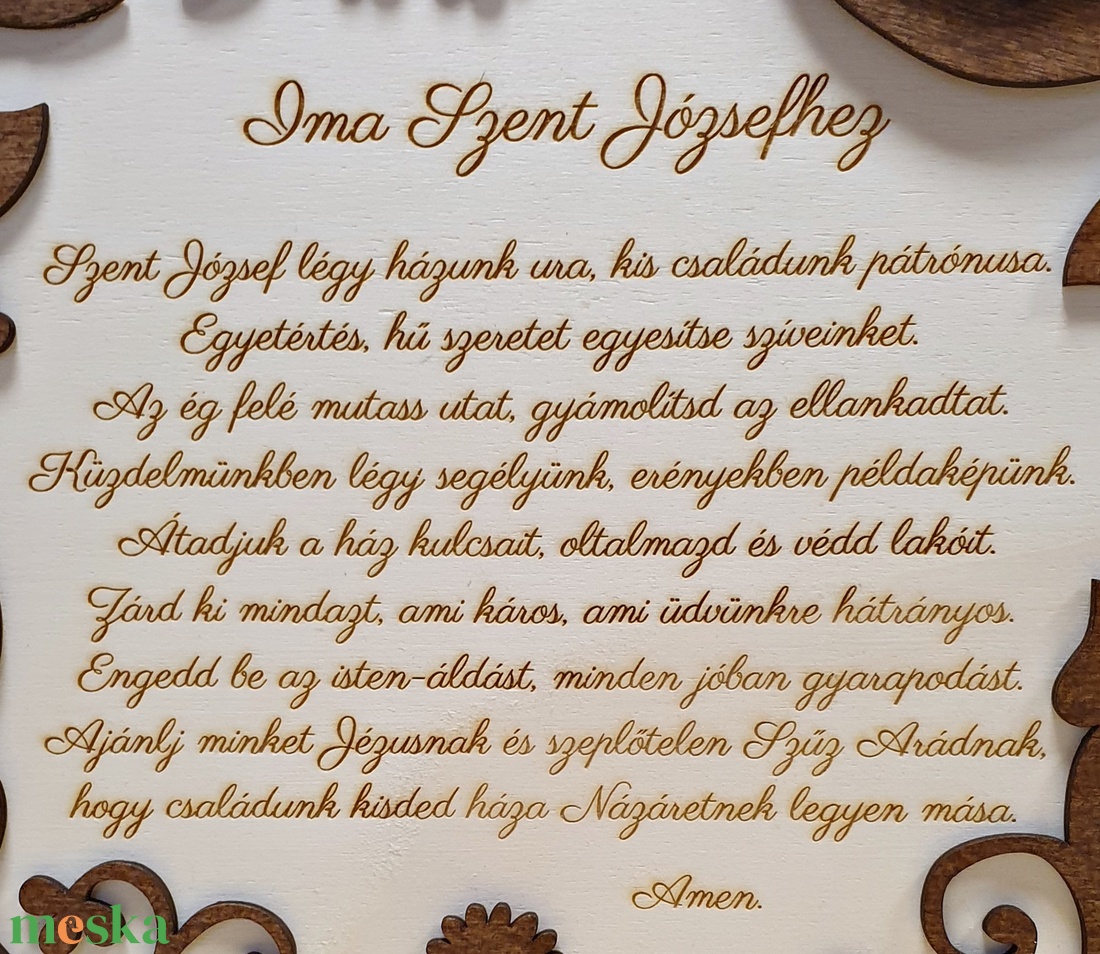 Ima Szent Józsefhez
Szent József légy házunk ura, kis családunk pátrónusa.
Egyetértés, hű szeretet egyesítse szíveinket.
Az ég felé mutass utat, gyámolítsd az ellankadtat.
Küzdelmünkben légy segélyünk, erényekben példaképünk.
Átadjuk a ház kulcsait, oltalmazd és védd lakóit.
Zárd ki mindazt, ami káros, ami üdvünkre hátrányos.
Engedd be az isten-áldást, minden jóban gyarapodást.
Ajánlj minket Jézusnak és szeplőtelen Szűz Arádnak,
hogy családunk kisded háza Názáretnek legyen mása.
Amen.
meska